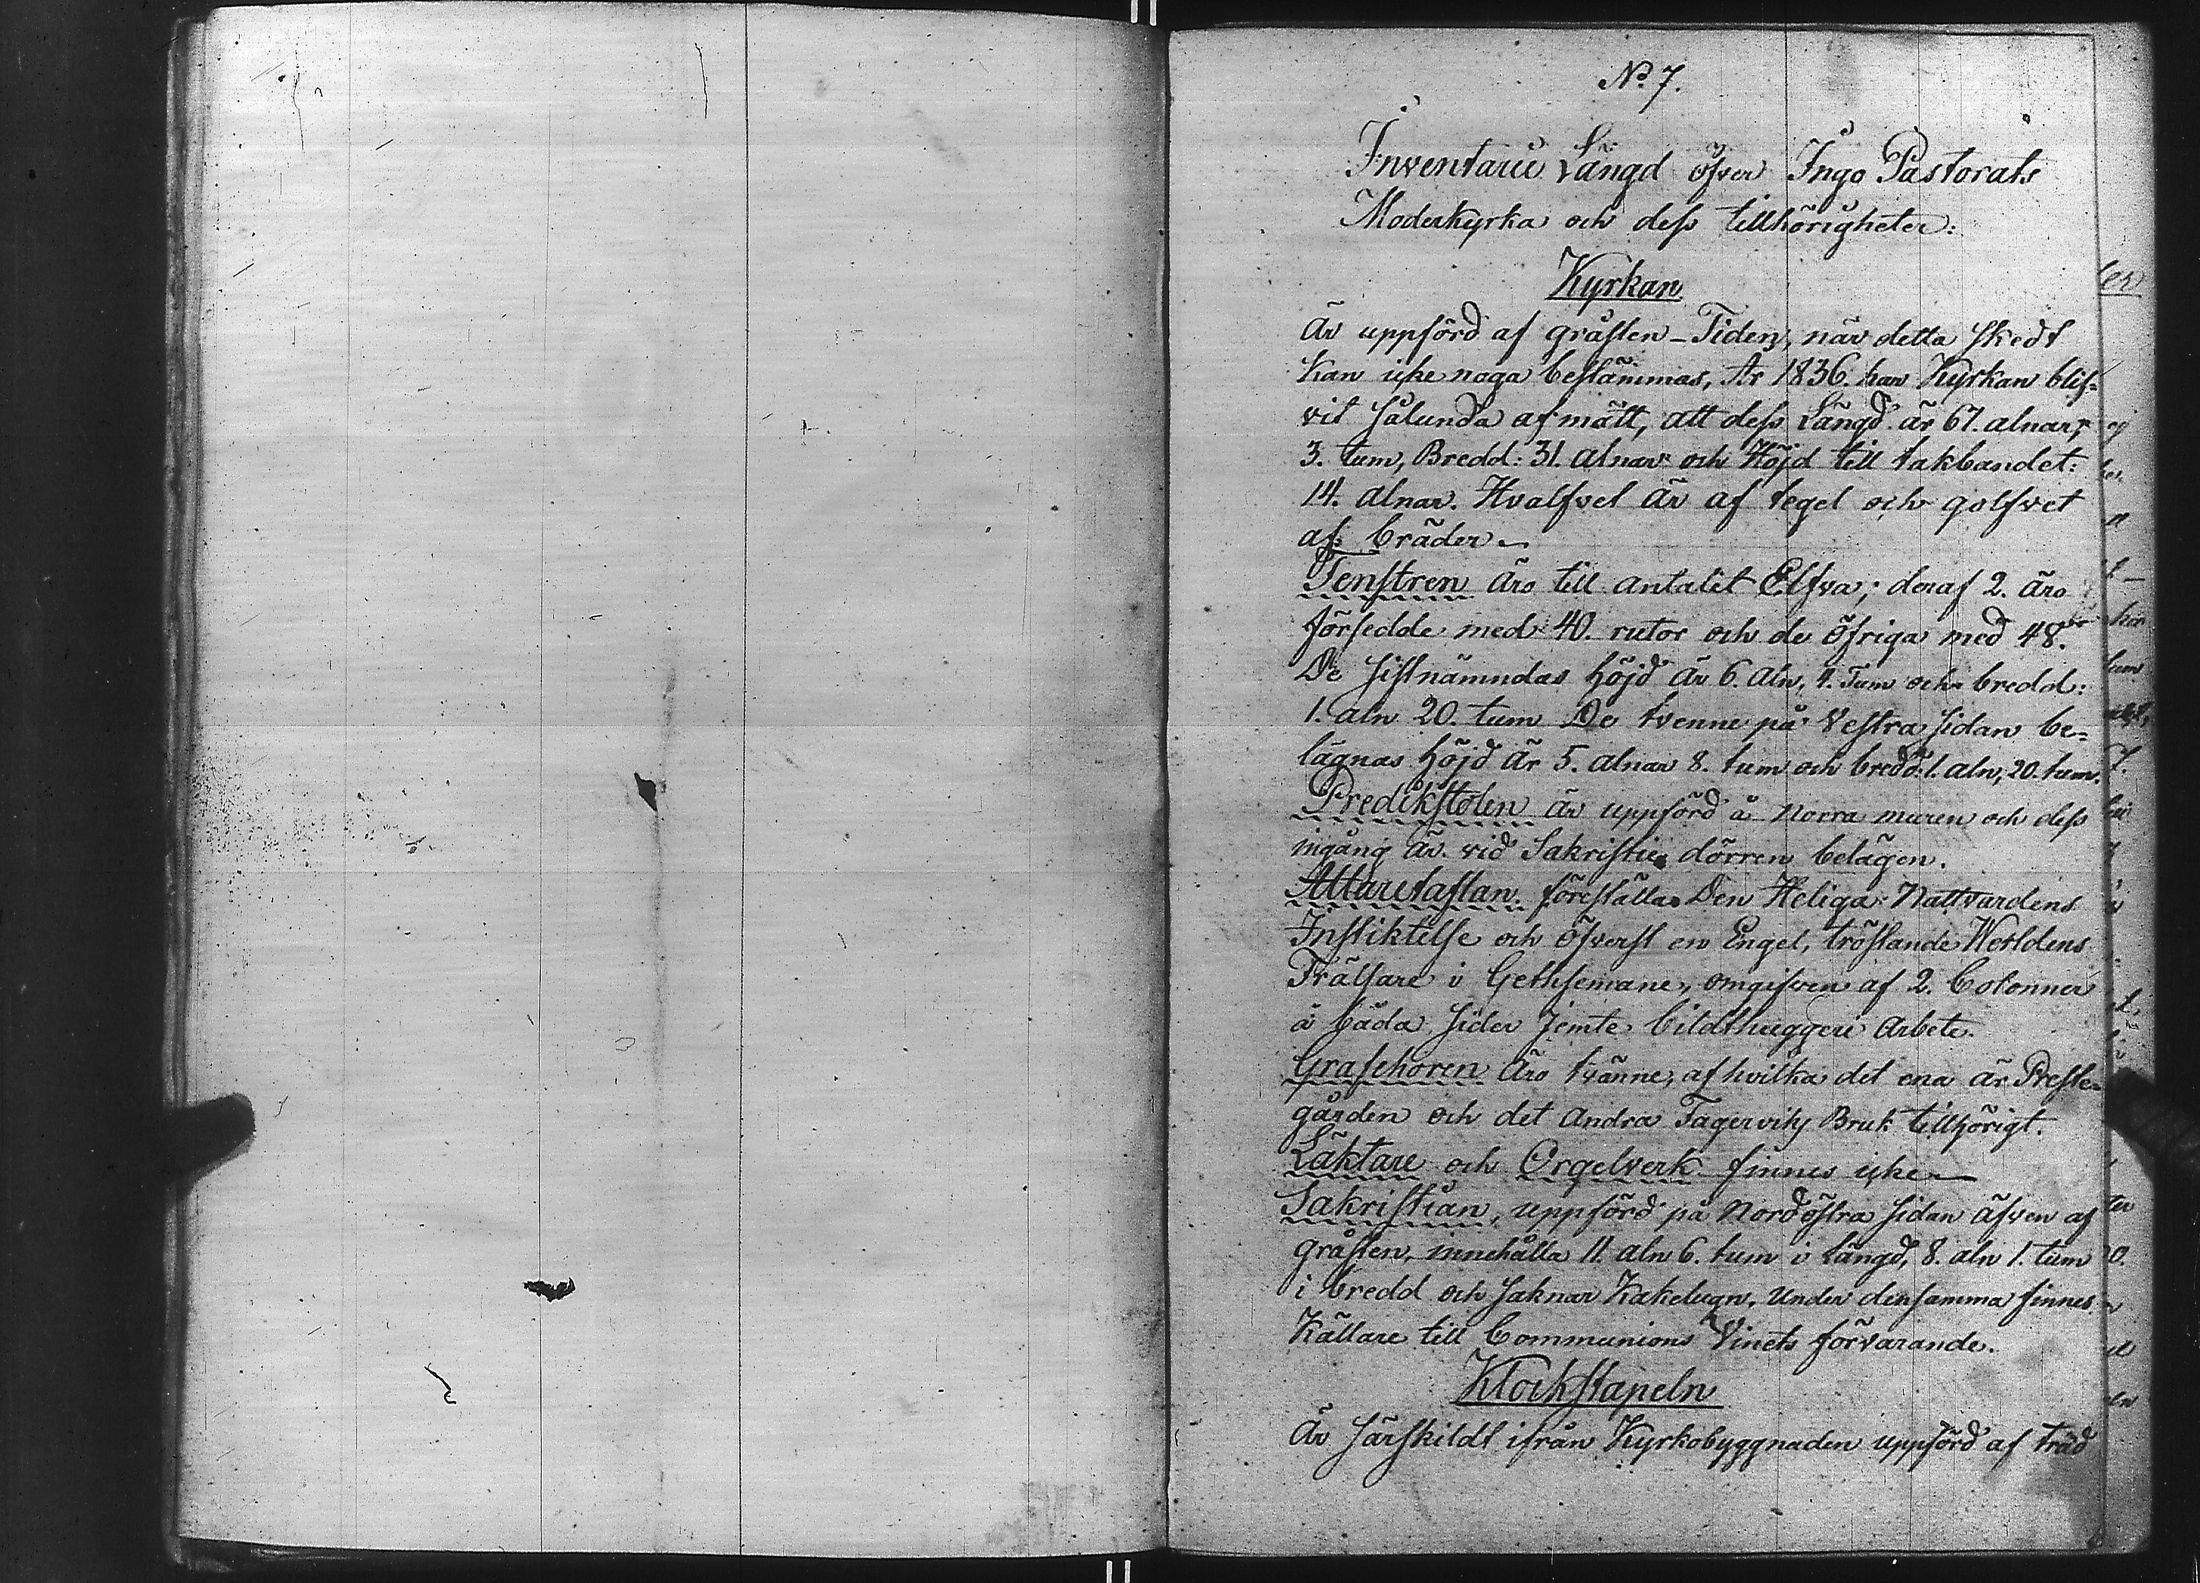 No 7.
Inventarii Längd öfver Ingo Pastorats
Moderkyrka och dess tillhörigheter:
Kyrkan
Är uppförd af gråsten – Tiden, när detta skedt
kan icke noga bestämmas, År 1836. har Kyrkan blif=
vit sålunda afmätt, att dess Längd är 67. alnar,
3. tum, Bredd: 31. alnar och Höjd till takbandet:
14. alnar. Hvalfvet är af tegel och golfvet
af bräder –
Fenstren äro till antalet Elfva; deraf 2. äro
försedde med 40. rutor och de öfriga med 48.
De sistnämndas höjd är 6. aln, 4. Tum och bredd:
1. aln 20. tum De tvenne på Vestra sidan be=
lägnas höjd är 5. alnar 8. tum och bredd: 1. aln, 20. tum.
Predikstolen är uppförd å Norra muren och dess
ingång är vid Sakristie dörren belägen.
Altaretaflan föreställa Den Heliga Nattvardens
Instiktelse och öfverst en Engel, tröstande Werldens
Frälsare i Gethsemane, omgifven af 2. Colonner
å båda sider jemte bildthuggeri Arbete.
Grafchoren äro tvänne, af hvilka det ena är Preste=
gården och det Andra Fagerviks Bruk tillhörigt.
Läktare och Orgelverk finnes icke –
Sakristian, uppförd på Nordöstra sidan äfven af
gråsten, innehålla 11. aln 6. tum i Längd, 8. aln 1. tum
i bredd och saknar Kakelugn. Under densamma finnes
Källare till Communions Vinets förvarande.
Klockstapeln
Är särskildt ifrån Kyrkobyggnaden uppförd af träd